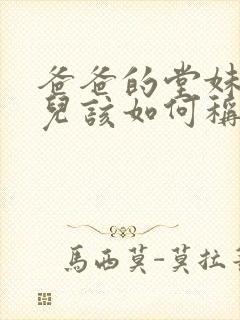 爸爸的堂妹
兒該如何稱
馬西莫-莫拉